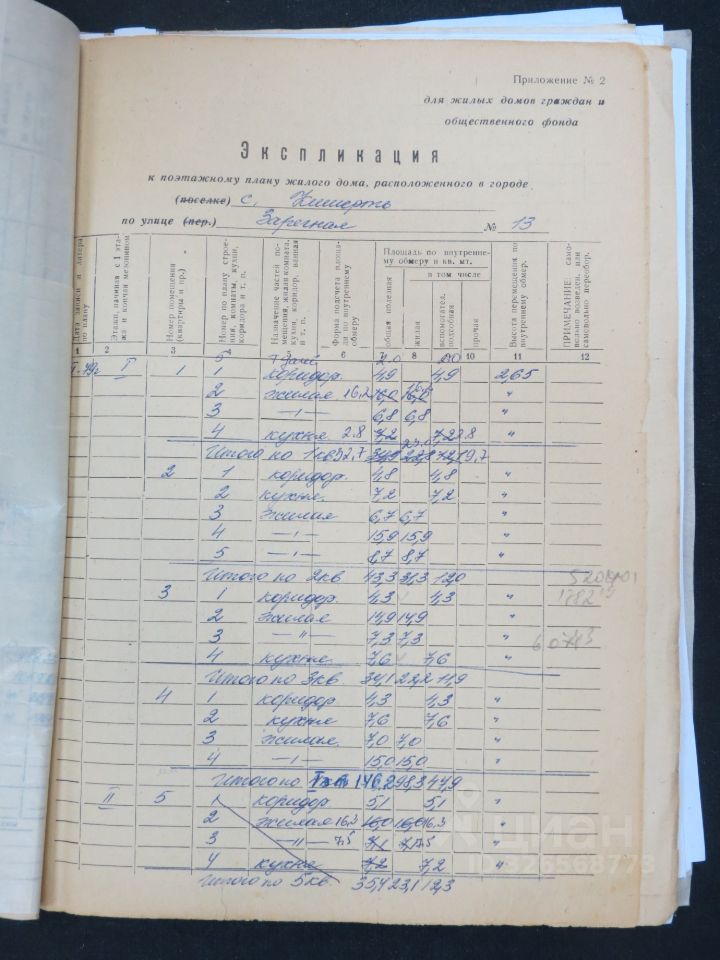 Приложение № 2
для жилых домов граждан и
общественного фонда
Экспликация
к поэтажному плану жилого дома, расположенного в городе
(поселке) с. Кишерть
по улице (пер.) Заречная № 13
Дата записи и литера по плану
Этажи, начиная с 1 этажа и кончая мезонином
Номер помещения (квартиры и пр.)
Номер по плану строения, комнаты, кухни, коридора и т. п.
Назначение частей помещения, жилая комната, кухня, коридор, ванная и т. п.
Форма подсчета площади по внутреннему обмеру
Площадь по внутреннему обмеру в кв. мт.
общая полезная
в том числе
жилая
вспомогат. подсобная
прочая
Высота перемещения по внутреннему обмер.
ПРИМЕЧАНИЕ: самовольно возведен. или самовольно переобор.
1 2 3 4 5 6 7 8 9 10 11 12
I 1 1 коридор. 4,9 4,9 2,65
2 жилая 16,2 16,0 16,0 "
3 —"— 6,8 6,8
4 кухня 2.8 7,2 7,2 2.8 "
Итого по 1 кв 32,7
2 1 коридор. 4,8 4,8 "
2 кухня. 7,2 7,2 "
3 жилая 6,7 6,7 "
4 —"— 15,9 15,9 "
5 —"— 8,7 8,7 "
Итого по 2 кв 43,3 31,3 12,0
3 1 коридор. 4,3 4,3 "
2 жилая 14,9 14,9 "
3 —"— 7,3 7,3 "
4 кухня. 7,6 7,6 "
Итого по 3 кв 34,1 22,2 11,9
4 1 коридор 4,3 4,3 "
2 кухня 7,6 7,6 "
3 жилая. 7,0 7,0 "
4 —"— 15,0 15,0 "
Итого по I эт 146,2 98,3 47,9
II 5 1 коридор 5,1 5,1 "
2 жилая 16,3 16,0 16,0 16,3 "
3 —"— 7,5 7,1 "
4 кухня 7,2 7,2 "
Итого по 5 кв. 35,4 23,1 12,3
циан
ID 326568773